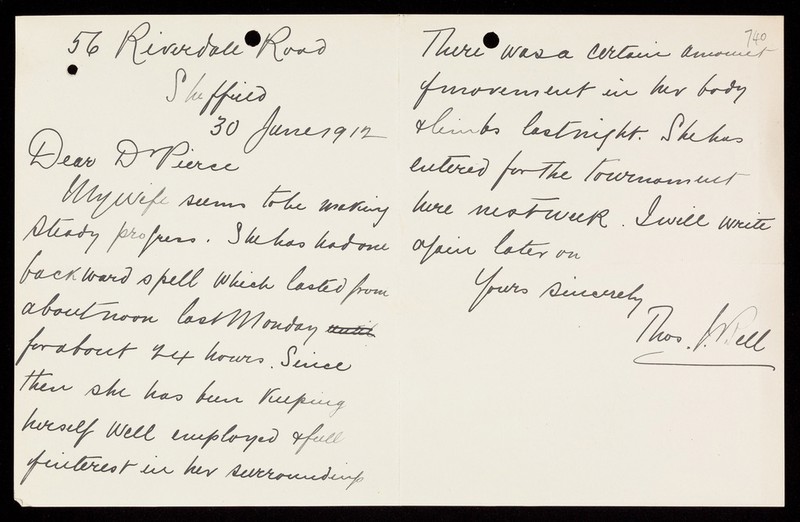 56 Riverdale Road
Sheffield
30 June 1912
Dear Dr Pierce
My wife seems to be making
steady progress. She has had one
backward spell which lasted from
about noon last Monday until
for about 24 hours. Since
then she has been keeping
herself well employed & full
of interest in her surroundings
740
There was a certain amount
of movement in her body
& limbs last night. She has
entered for the tournament
here next week. I will write
again later on
Yours sincerely
Thos. J.